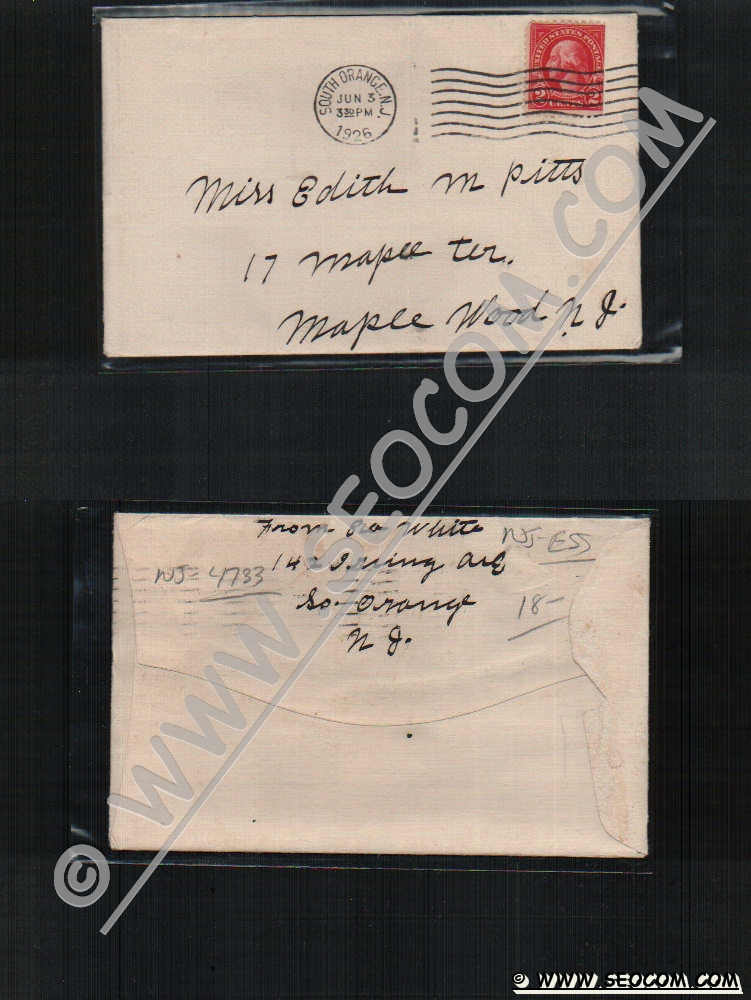 SOUTH ORANGE, N.J.
JUN 3
3 30 PM
1926
UNITED STATES POSTAGE
2 CENTS 2
Miss Edith M Pitts
17 Maple Ter.
Maple Wood N J.
From White
14 Irving Ave
So. Orange
N J.
NJ-ESS
NJ= 4733
18-
© WWW.SEOCOM.COM
© WWW.SEOCOM.COM